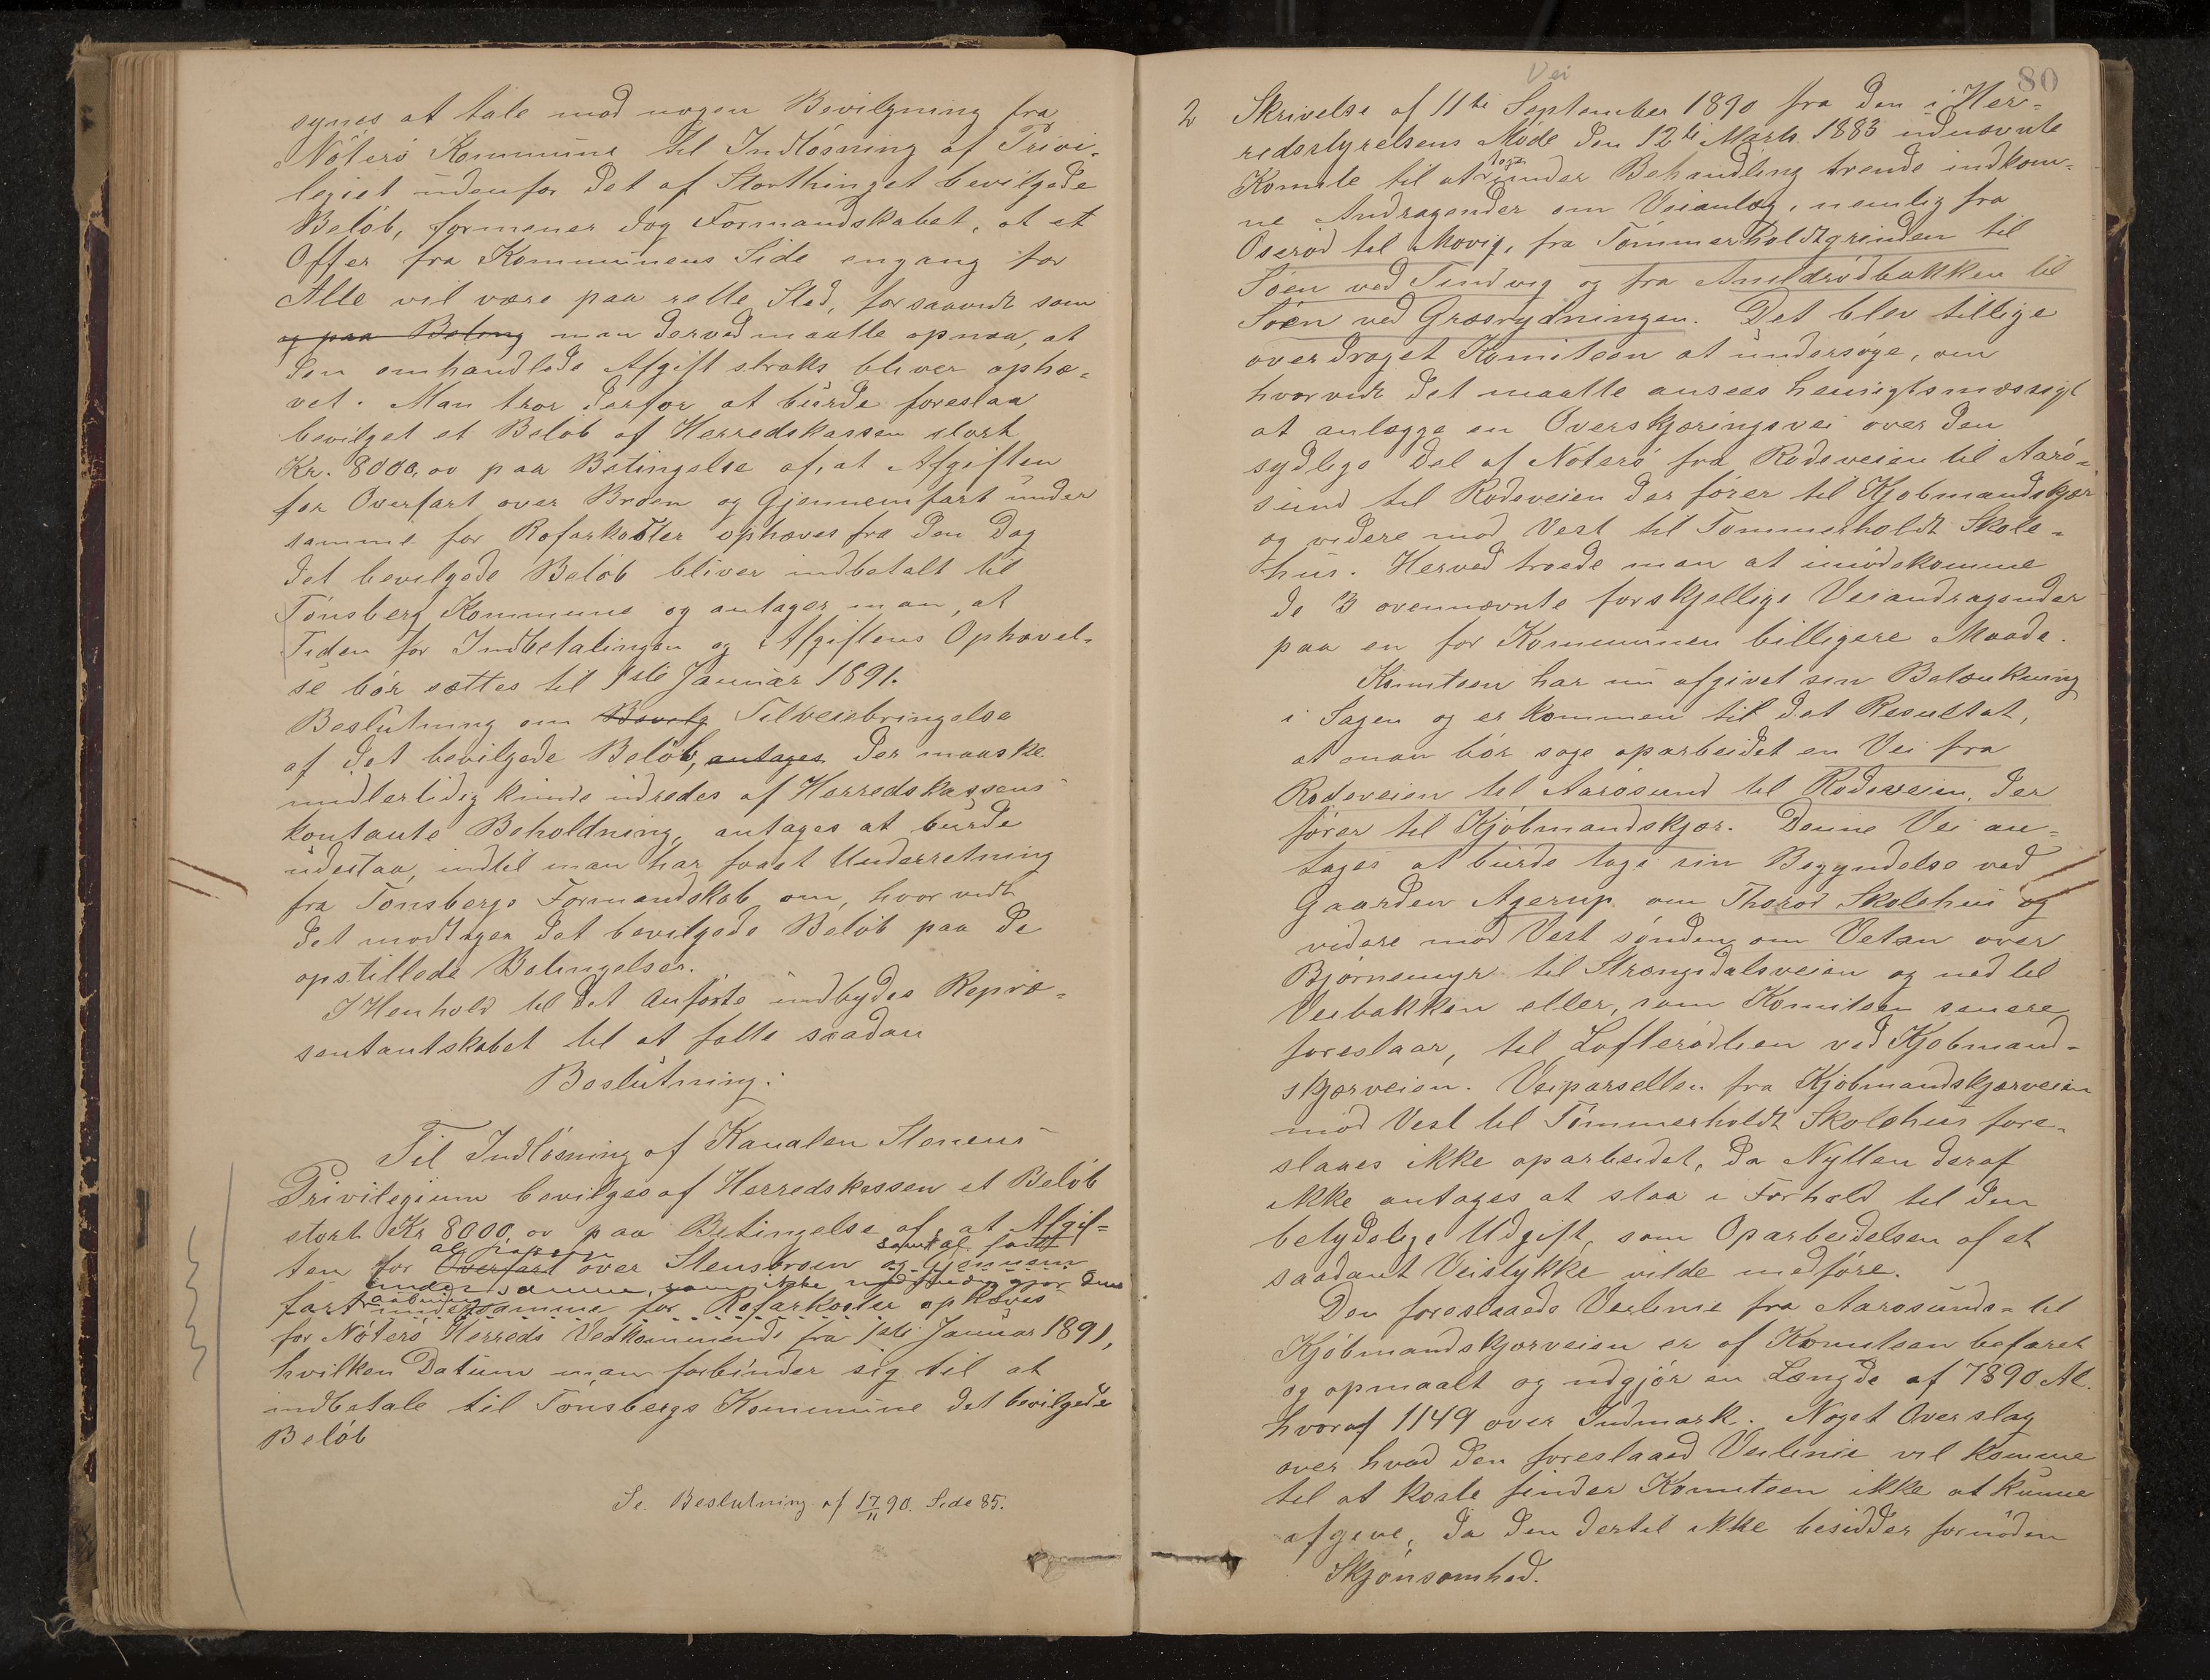 synes at tale mod nogen Bevilgning fra
Nøterø Kommune til Indløsning af Privi-
legiet udenfor det af Storthinget bevilgede
Beløb, formener dog Formandskabet, at et
Offer fra Kommunens Side engang for
Alle vil være paa rette Sted, forsaavidt som
og paa Beting man derved maatte opnaa, at
den omhandlede Afgift straks bliver ophæ-
vet. Man tror derfor at burde foreslaa
bevilget et Beløb af Herredskassen stort
Kr. 8000,00 paa Betingelse af, at Afgiften
for Overfart over Broen og Gjennemfart under
samme for Rofarkoster ophæves fra den Dag
det bevilgede Beløb bliver indbetalt til
Tønsberg Kommune og antager man, at
Tiden for Indbetalingen og Afgiftens Ophævel-
se bør sættes til 1ste Januar 1891.
Beslutning om Bevilg Tilveiebringelse
af det bevilgede Beløb, antages der maaske
midlertidig kunde udredes af Herredskassens
kontante Beholdning, antages at burde
udestaa, indtil man har faaet Underretning
fra Tønsbergs Formandskab om, hvorvidt
det modtager det bevilgede Beløb paa de
opstillede Betingelser.
I Henhold til det Anførte indbydes Repræ-
sentantskabet til at fatte saadan
Beslutning:
Til Indløsning af Kanalen Stenens
Privilegium bevilges af Herredskassen et Beløb
stort Kr 8000,00 paa Betingelse af, at Afgif-
al Passage samt al
ten for Overfart over Stensbroen og Gjennem
under samme, som ikke nødvendiggjør dens
aabning
fart under samme for Rofarkoster ophæves
for Nøterø Herreds Vedkommende fra 1ste Januar 1891,
hvilken Datum man forbinder sig til at
indbetale til Tønsbergs Kommune det bevilgede
Beløb
Se Beslutning af 17/11 90. Side 85.
Vei
80
2 Skrivelse af 11te September 1890 fra den i Her-
redsstyrelsens Møde den 12te Marts 1883 udnævnte
tage
Komite til at under Behandling trende indkom-
ne Andragender om Veianlæg, nemlig fra
Oserød til Movig, fra Tømmerholdtgrinden til
Søen ved Sundvig og fra Anildrødbakken til
Søen ved Græsrydningen. Det blev tillige
overdraget Komiteen at undersøge, om
hvorvidt det maatte ansees hensigtsmæssigt
at anlægge en Overskjæringsvei over den
sydlige Del af Nøterø fra Rodeveien til Aarø-
sund til Rodeveien der fører til Kjøbmandskjær
og videre mod Vest til Tømmerholdt Skole-
hus. Herved troede man at imødekomme
de 3 ovennævnte forskjellige Veiandragender
paa en for Kommunen billigere Maade.
Komiteen har nu afgivet sin Betænkning
i Sagen og er kommen til det Resultat,
at man bør søge oparbeidet en Vei fra
Rodeveien til Aarøsund til Rodeveien, der
fører til Kjøbmandskjær. Denne Vei an-
tages at burde tage sin Begyndelse ved
Gaarden Agerup om Thorød Skolehus og
videre mod Vest sønden om Vetan over
Bjørnemyr til Strængsdalsveien og ned til
Veibakken eller, som Komiteen senere
foreslaar, til Lofterødlien ved Kjøbmand-
skjærveien. Veiparsellen fra Kjøbmandskjærveien
mod Vest til Tømmerholdt Skolehus fore-
slaaes ikke oparbeidet, da Nytten deraf
ikke antages at staa i Forhold til den
betydelige Udgift, som Oparbeidelsen af et
saadant Veistykke vilde medføre.
Den foreslaaede Veilinie fra Aarøsunds- til
Kjøbmandskjærveien er af Komiteen befaret
og opmaalt og udgjør en Længde af 7890 Al.
hvoraf 1149 over Indmark. Noget Overslag
over hvad den foreslaaed Veilinie vil komme
til at koste finder Komiteen ikke at kunne
afgive, da den dertil ikke besidder fornøden
Skjønsomhed.